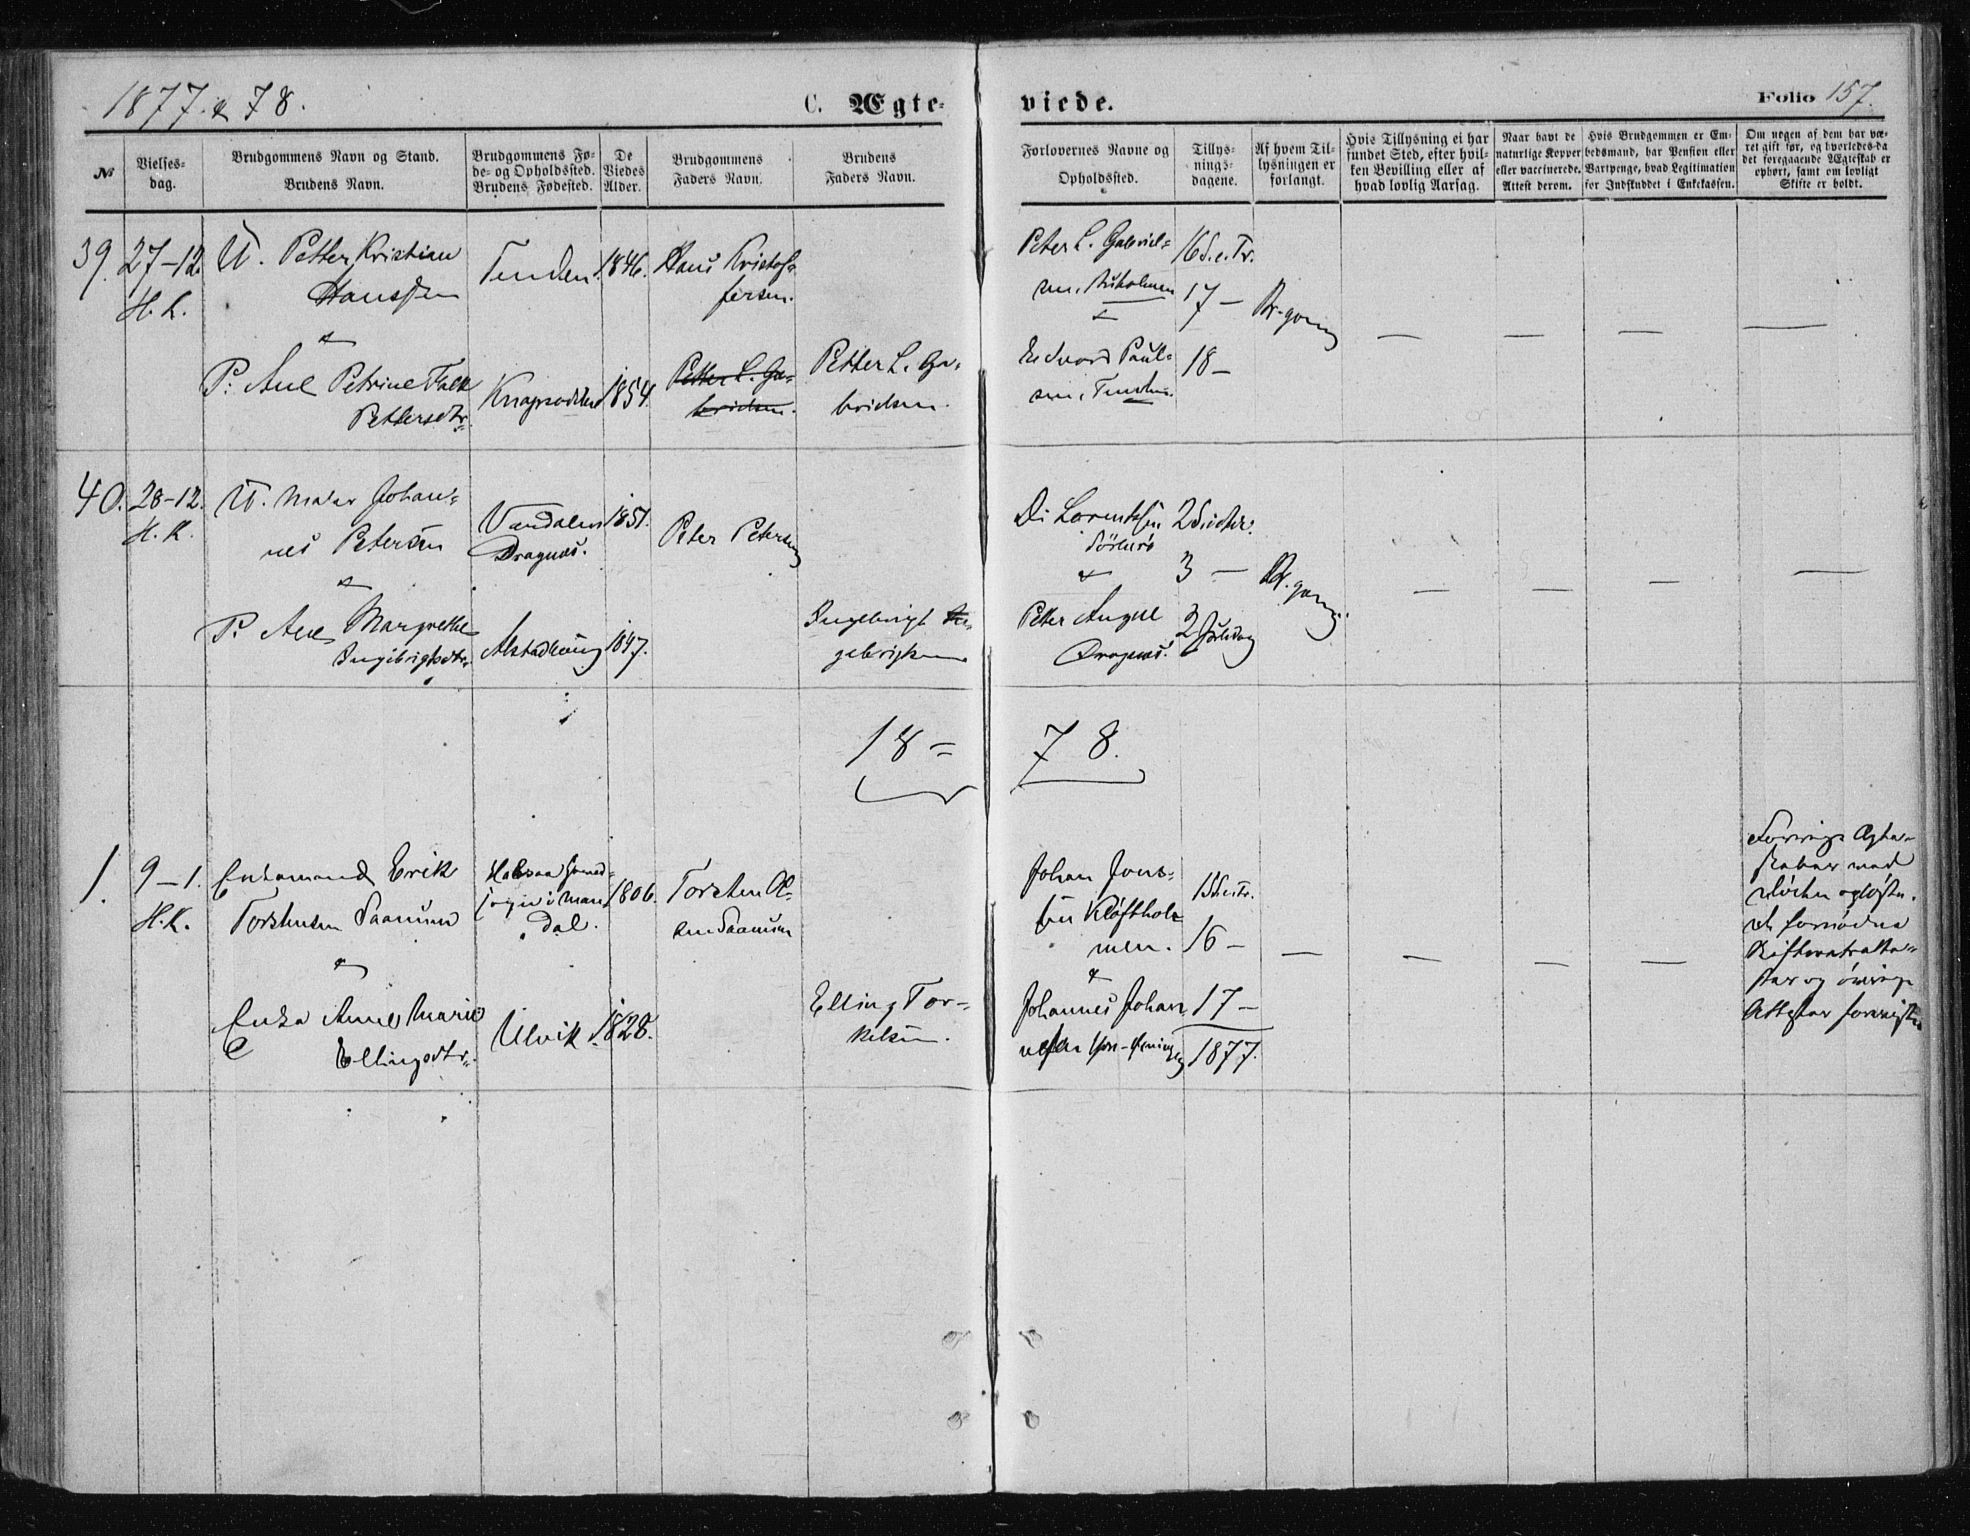 1877 & 78.
C. Ægte-
viede.
Folio 157.
№
Vielses-
dag.
Brudgommens Navn og Stand.
Brudens Navn.
Brudgommens Fø-
de- og Opholdssted.
Brudens Fødested.
De
Viedes
Alder.
Brudgommens
Faders Navn.
Brudens
Faders Navn.
Forlovernes Navne og
Opholdssted.
Tillys-
nings-
dagene.
Af hvem Til-
lysningen er
forlangt.
Hvis Tillysning ei har
fundet Sted, efter hvil-
ken Bevilling eller af
hvad lovlig Aarsag.
Naar havt de
naturlige Kopper
eller vaccinerede.
Attest derom.
Hvis Brudgommen er Em-
bedsmand, har Pension eller
Vartpenge, hvad Legitimation
for Indskuddet i Enkekassen.
Om nogen af dem har væ-
ret gift før, og hvorledes da
det foregaaende Ægteskab er
ophørt, samt om lovligt
Skifte er holdt.
39.
27-12.
H. K.
U. Petter Kristian
Hanssen
&
P: Ane Petrine Falk
Pettersdtr.
Tenden.
1846.
1854.
Hans Kristof-
fersen.
Petter L. Ga-
brielsen.
Petter L. Ga-
brielsen.
Peter L. Gabriel-
sen,
&
Edvard Paul-
sen,
16 S. e. Tr.
17 —
18 —
Br-gom
40.
28-12.
H. K.
U. Johan-
nes Petersen
&
P: Ane Margrethe
Ingebrigtsdtr.
Dragnæs.
1851.
1847.
Peter Petersen
Ingebrigt In-
gebrigtsen
Lorentsen
&
Peter
Dragnæs.
3 —
2 Juledag
Br. gom
18 =
78.
1.
9-1.
H. K.
Enkemand Erik
Torstensen Saanum
&
Enke Anne Marie
Ellingsdtr.
Halsaa
sogn i Man-
dal.
Ulvik.
1806.
1828.
Torsten Ol-
sen Saanum
Elling Tor-
kelsen.
Johan Jons-
sen Kløfthol-
men.
&
Johannes Johan-
nessen
15 S. e. Tr.
16 —
17 —
1877.
Forrige Ægte-
skaber med
Døden opløste.
De fornødne
Skifteretsatte-
ster og øvrige
Attester foreviste.